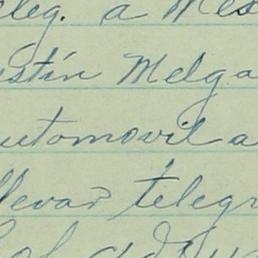 eleg. a Mex
ustín Melga
automovil a
llevar telegr